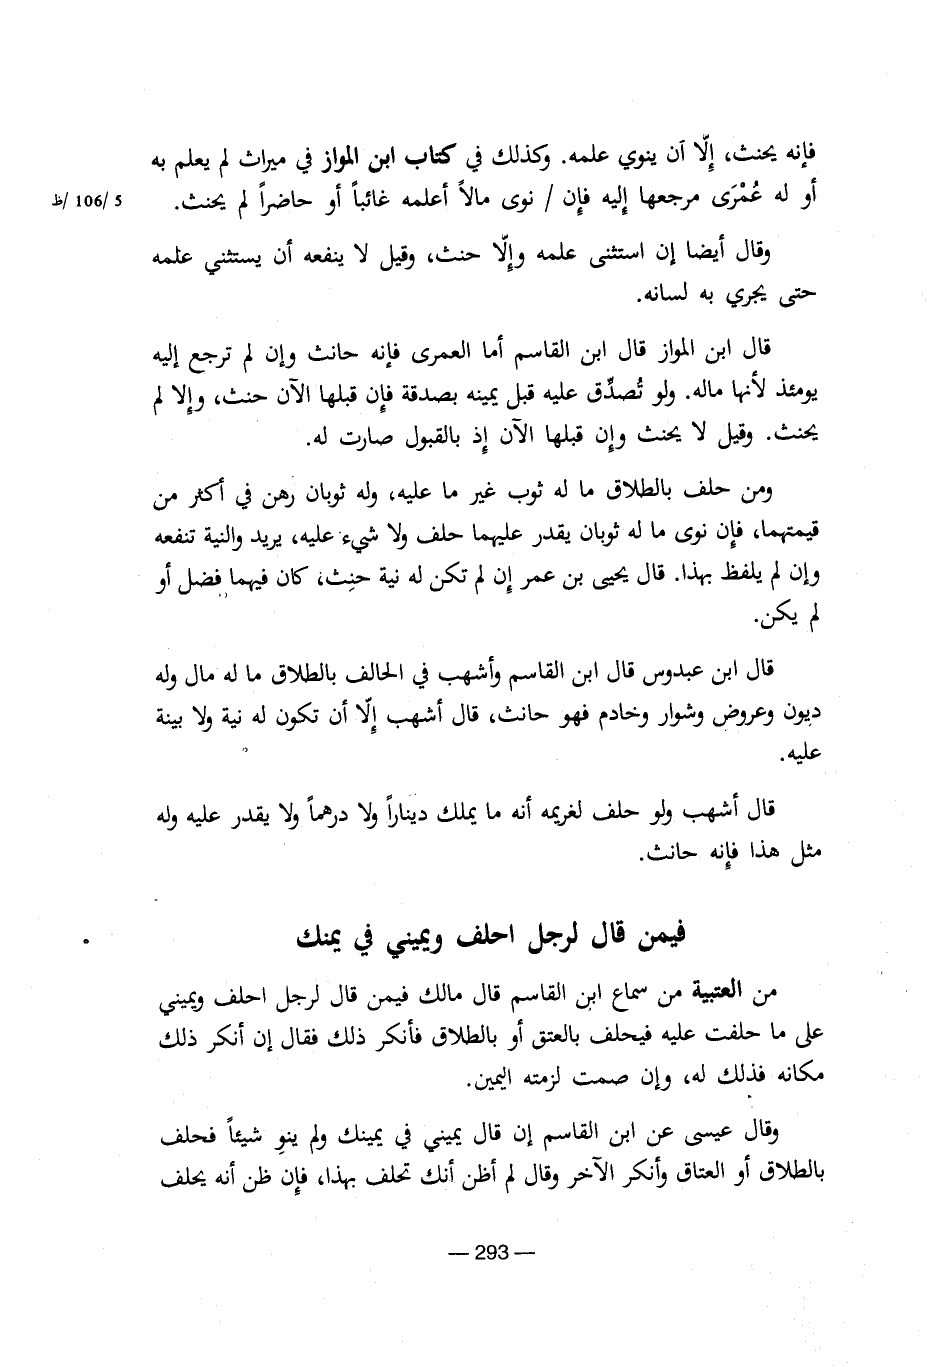 فإنه يحنث، إلّا أن ينوي علمه. وكذلك في كتاب ابن المواز في ميراث لم يعلم به
أو له عُمْرَى مرجعها إليه فإن / نوى مالاً أعلمه غائباً أو حاضراً لم يحنث.
5 /106 /ظ
وقال أيضا إن استثنى علمه وإلّا حنث، وقيل لا ينفعه أن يستثني علمه
حتى يجري به لسانه.
قال ابن المواز قال ابن القاسم أما العمرى فإنه حانث وإن لم ترجع إليه
يومئذ لأنها ماله. ولو تُصدِّق عليه قبل يمينه بصدقة فإن قبلها الآن حنث، وإلا لم
يحنث. وقيل لا يحنث وإن قبلها الآن إذ بالقبول صارت له.
ومن حلف بالطلاق ما له ثوب غير ما عليه، وله ثوبان رهن في أكثر من
قيمتهما، فإن نوى ما له ثوبان يقدر عليهما حلف ولا شيء عليه، يريد والنية تنفعه
وإن لم يلفظ بهذا. قال يحيى بن عمر إن لم تكن له نية حنِث، كان فيهما فضل أو
لم يكن.
قال ابن عبدوس قال ابن القاسم وأشهب في الحالف بالطلاق ما له مال وله
ديون وعروض وشوار وخادم فهو حانث، قال أشهب إلّا أن تكون له نية ولا بينة
عليه.
قال أشهب ولو حلف لغريمه أنه ما يملك ديناراً ولا درهماً ولا يقدر عليه وله
مثل هذا فإنه حانث.
فيمن قال لرجل احلف ويميني في يمنك
من العتبية من سماع ابن القاسم قال مالك فيمن قال لرجل احلف ويميني
على ما حلفت عليه فيحلف بالعتق أو بالطلاق فأنكر ذلك فقال إن أنكر ذلك
مكانه فذلك له، وإن صمت لزمته اليمين.
وقال عيسى عن ابن القاسم إن قال يميني في يمينك ولم ينوِ شيئاً فحلف
بالطلاق أو العتاق وأنكر الآخر وقال لم أظن أنك تحلف بهذا، فإن ظن أنه يحلف
— 293 —